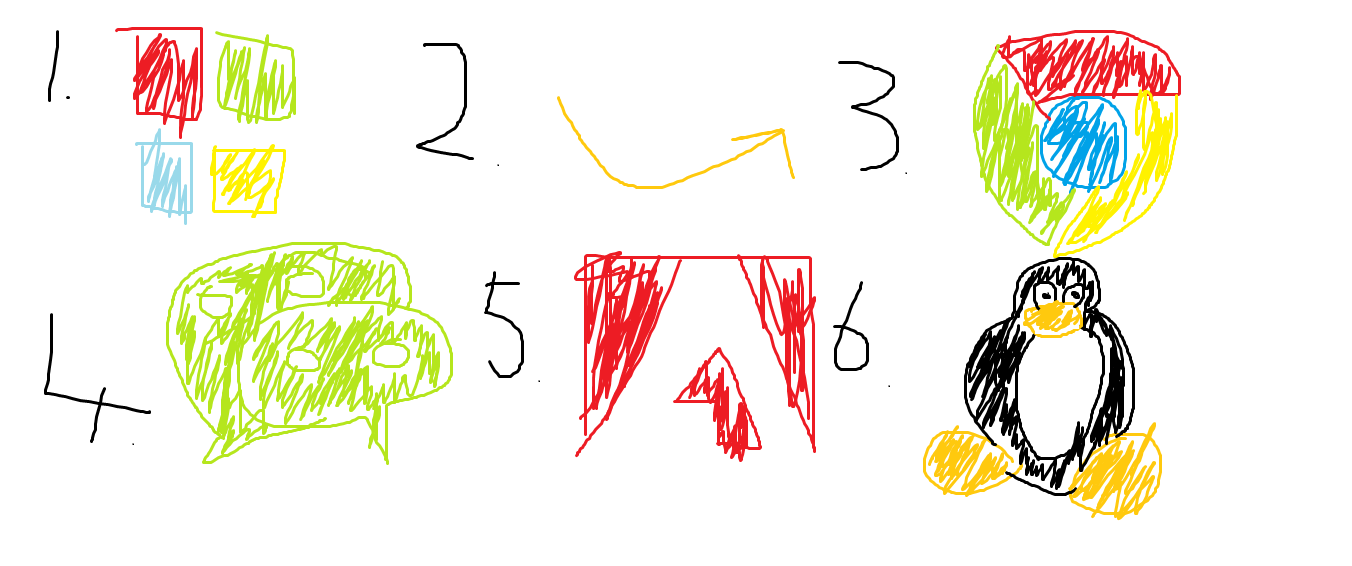 1. 2. 3.
4. 5. 6.